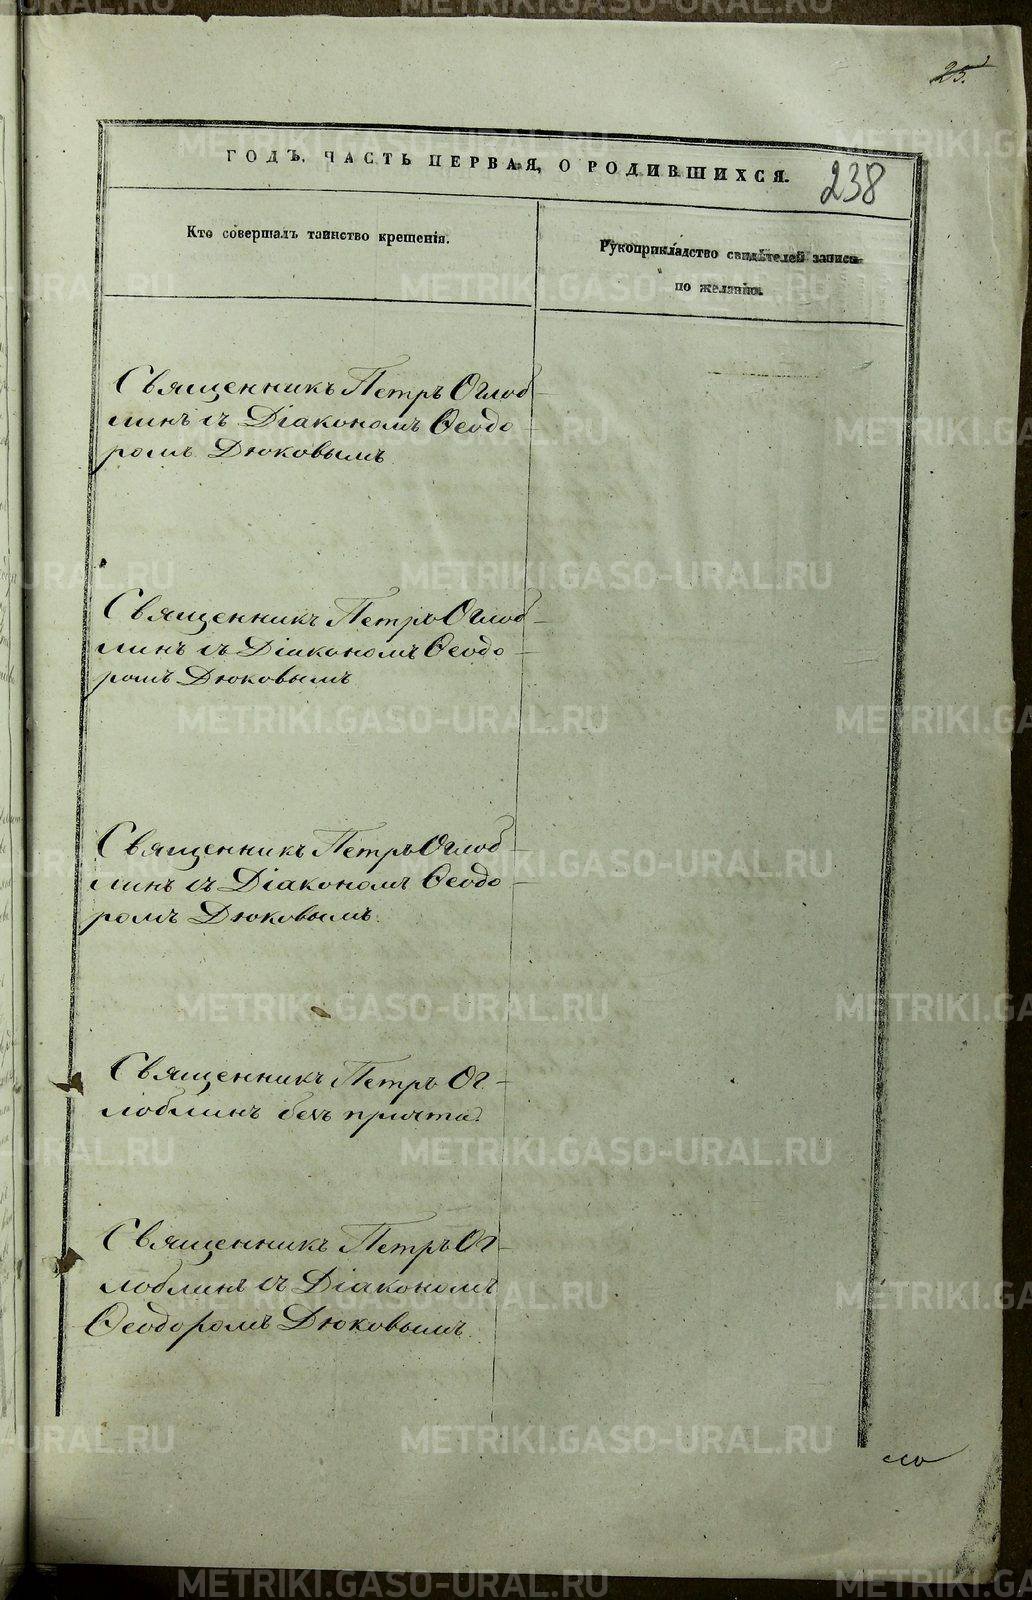 25.
ГОДЪ. ЧАСТЬ ПЕРВАЯ, О РОДИВШИХСЯ.
238
Кто совершалъ таинство крещенія.
Рукоприкладство свидѣтелей записи
по желанію.
Священникъ Петръ Оглоб
линъ съ Діакономъ Ѳеодо
ромъ Дюковымъ
Священникъ Петръ Оглоб
линъ съ Діакономъ Ѳеодо
ромъ Дюковымъ
Священникъ Петръ Оглоб
линъ съ Діакономъ Ѳеодо
ромъ Дюковымъ.
Священникъ Петръ Ог-
лоблинъ безъ причта.
Священникъ Петръ Ог-
лоблинъ съ Діакономъ
Ѳеодоромъ Дюковымъ.
METRIKI.GASO-URAL.RU